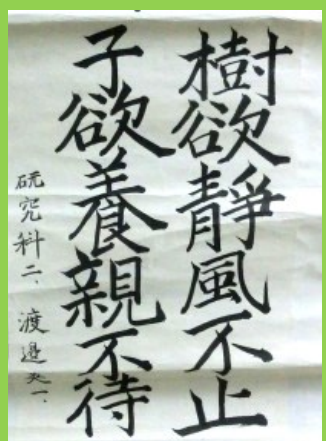 樹欲靜風不止
子欲養親不待
研究科二、渡邉